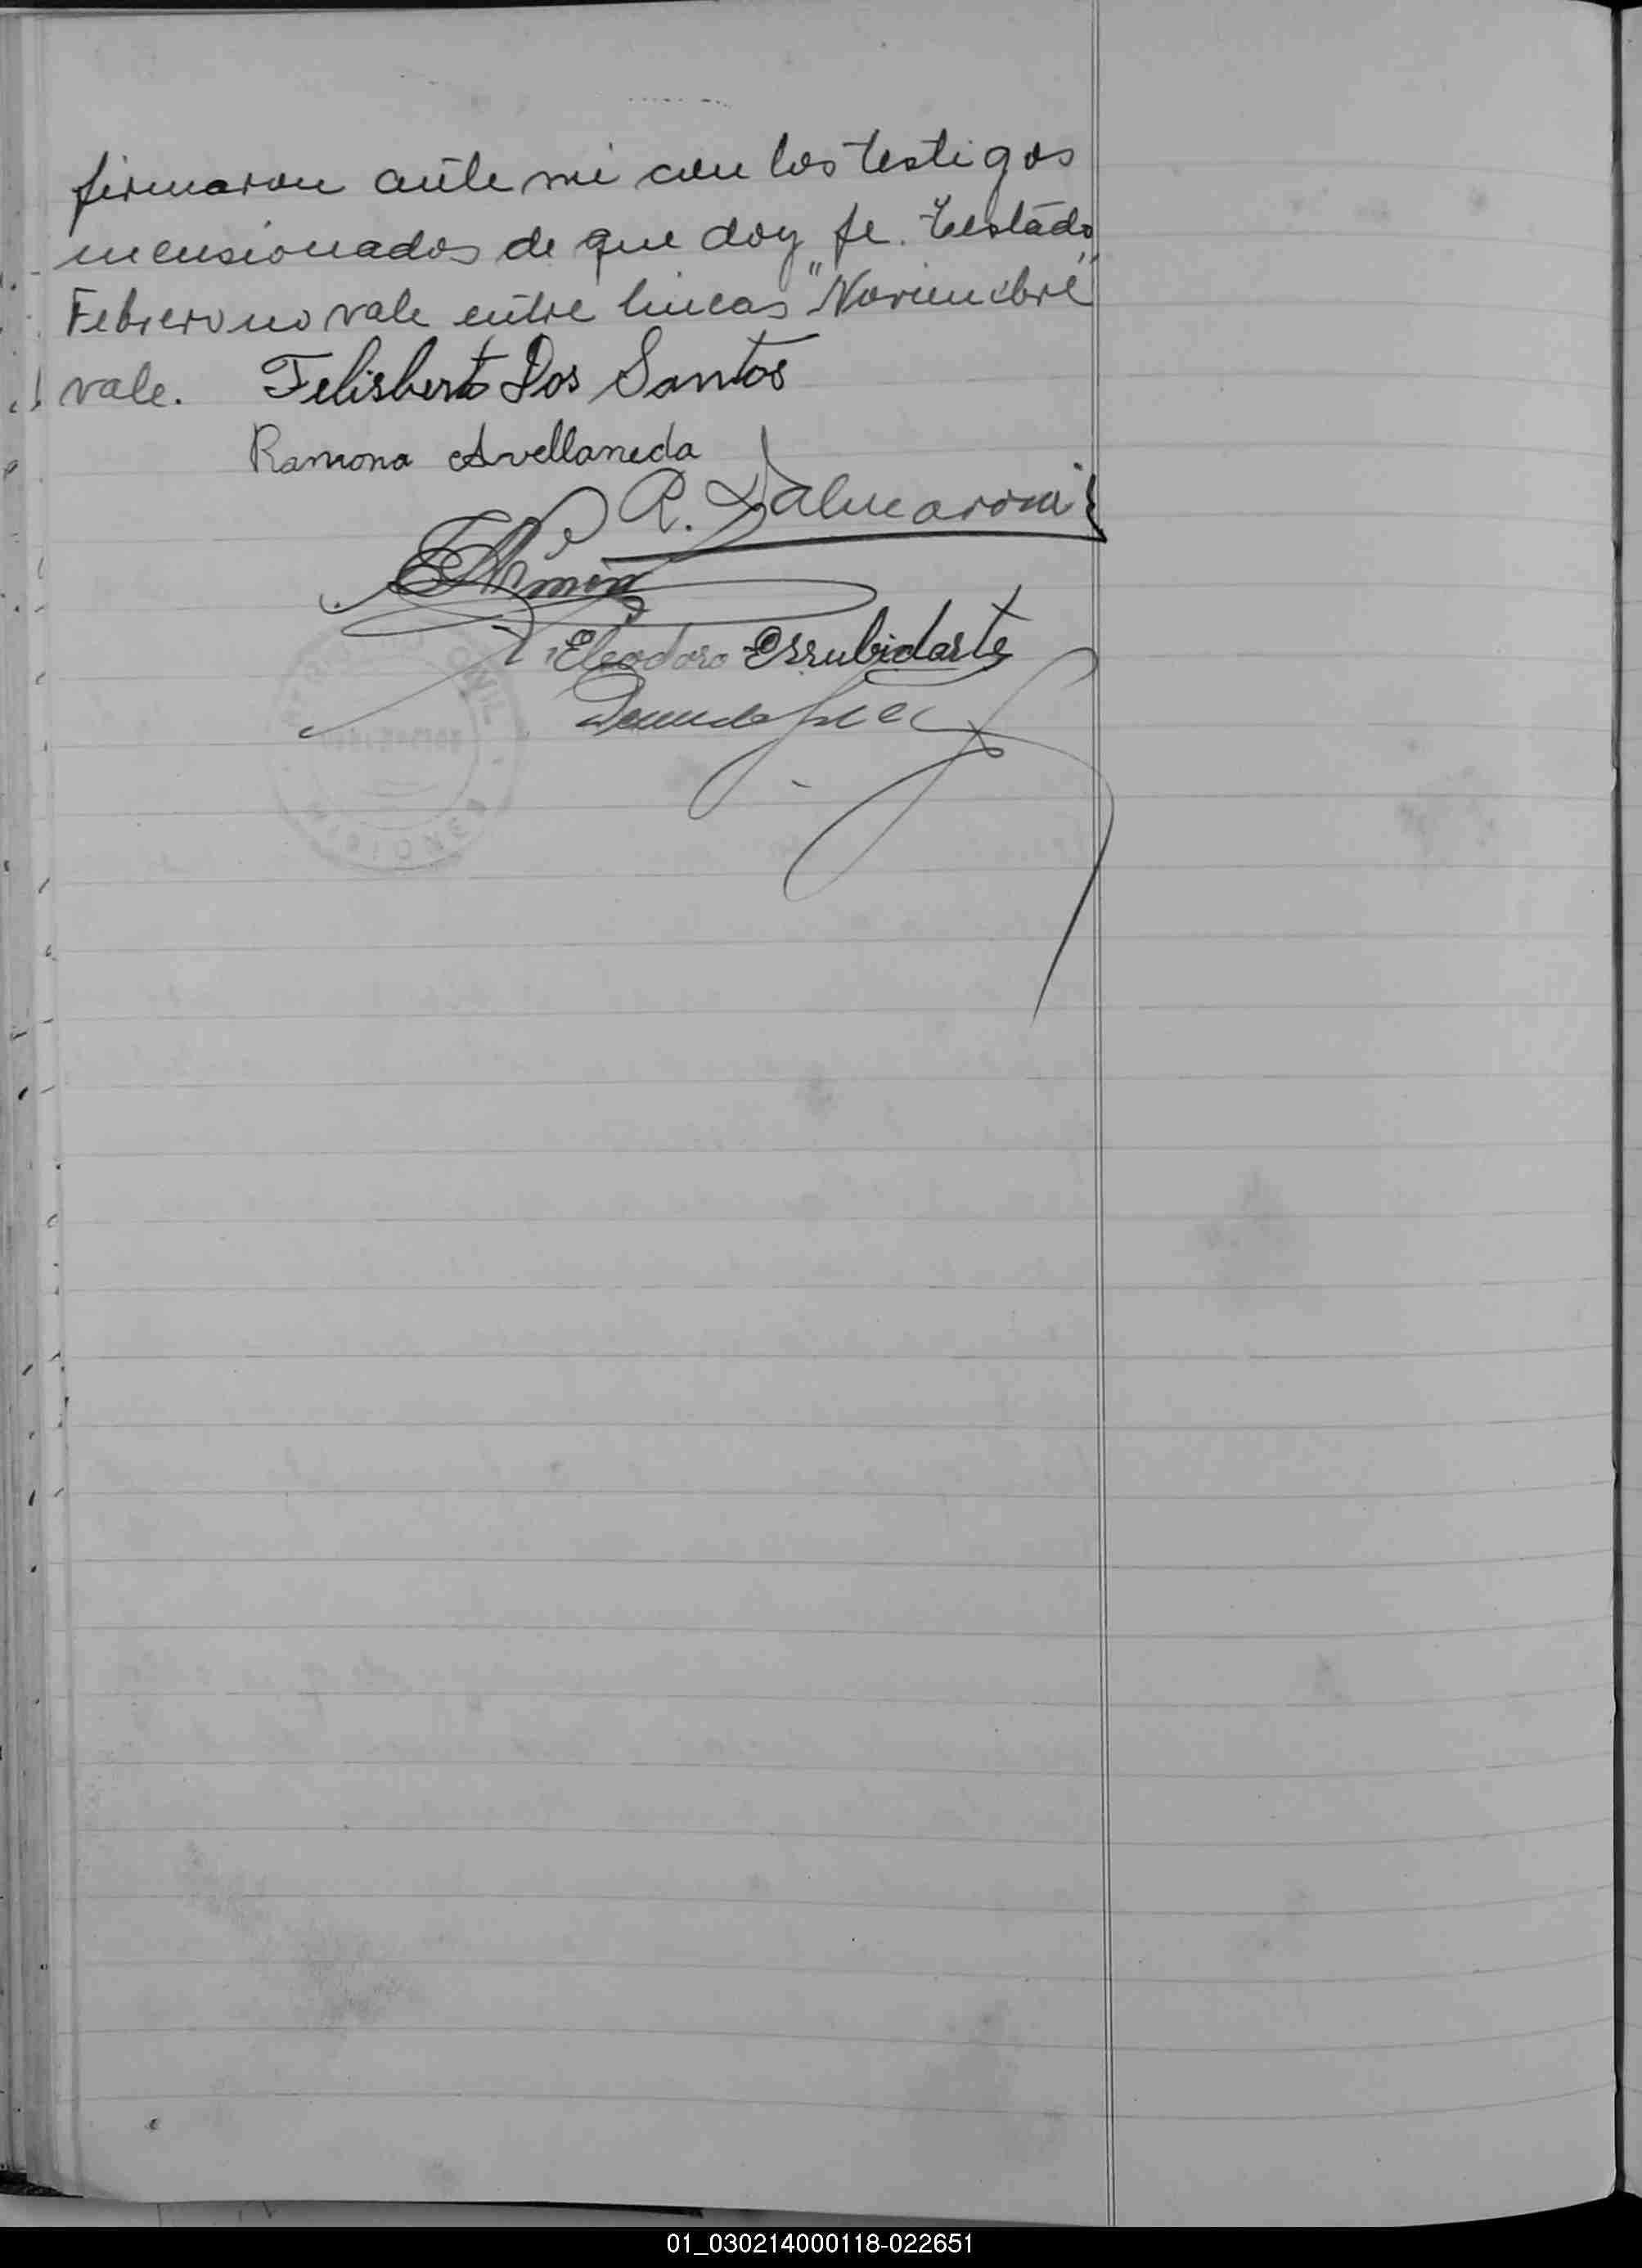 firmaron ante mi con los testigos
mensionados de que doy fe. Testado
Febrero no vale entre lineas "Noviembre"
vale. Felisberto Dos Santos
Ramona Avellaneda
R.
Eleodoro Errubidarte
REGISTRO CIVIL
MISIONES
01_030214000118-022651